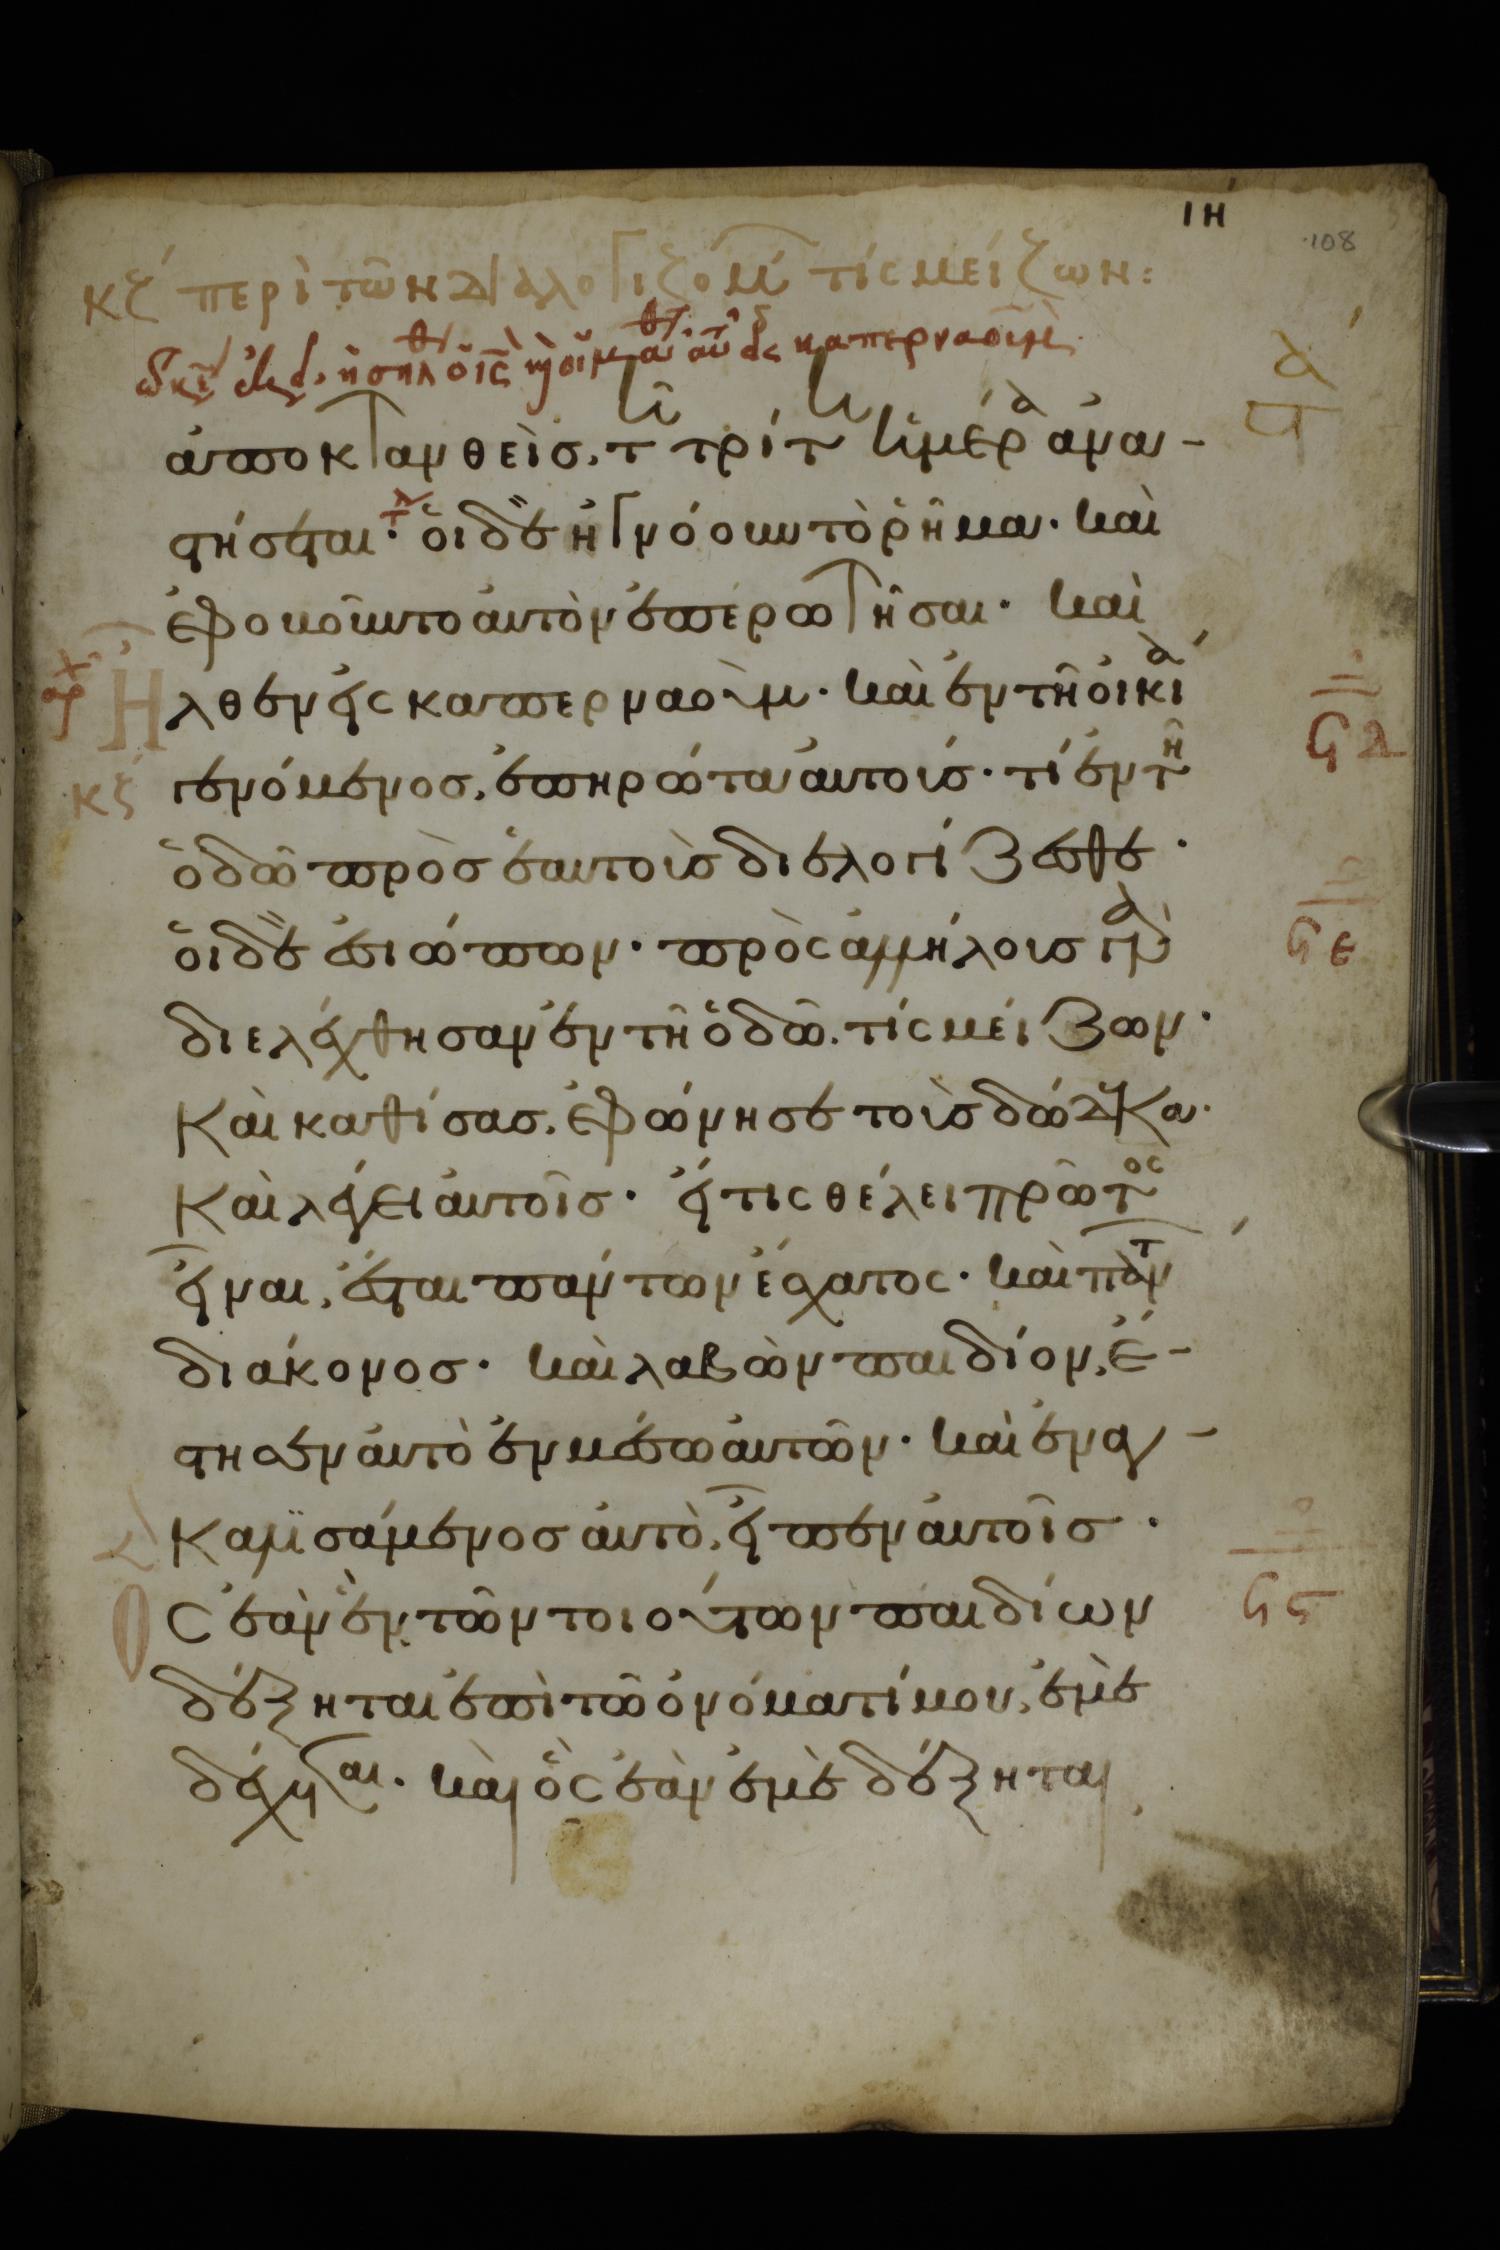 ιη
108
κζ περὶ τῶν διαλογιζομ τίς μείζων:
ἀποκτανθεὶσ, τῆ τρίτη ἡμέρα ἀνα-
στήσεται· οἱ δὲ ἠγνόουν τὸ ρῆμα· καὶ
ἐφοβοῦντο αὐτὸν ἐπερωτῆσαι· καὶ
Ηλθεν εἰς καπερναούμ· καὶ ἐν τῆ οἰκία
κζ γενόμενος, ἐπηρώτα αὐτούσ· τί ἐν τῆ
ὁδῶ πρὸσ ἑαυτοὺσ διελογίζεσθε·
οἱ δὲ ἐσιώπων· πρὸς ἀλλήλουσ γὰρ
διελέχθησαν ἐν τῆ ὁδῶ, τίς μείζων·
Καὶ καθίσασ, ἐφώνησε τοὺσ δώδεκα·
Καὶ λέγει αὐτοῖσ· εἴ τις θέλει πρῶτος
εἶναι, ἔσται πάντων ἔσχατος· καὶ πάντων
διάκονοσ· καὶ λαβὼν παιδίον, ἔ-
στησεν αὐτὸ ἐν μέσω αὐτῶν· καὶ ἐναγ-
Καλισάμενοσ αὐτὸ, εἶπεν αὐτοῖσ·
Ος ἐὰν ἓν τῶν τοιούτων παιδίων
δέξηται ἐπὶ τῶ ὀνόματί μου, ἐμὲ
δέχεται· καὶ ὃς ἐὰν ἐμὲ δέξηται